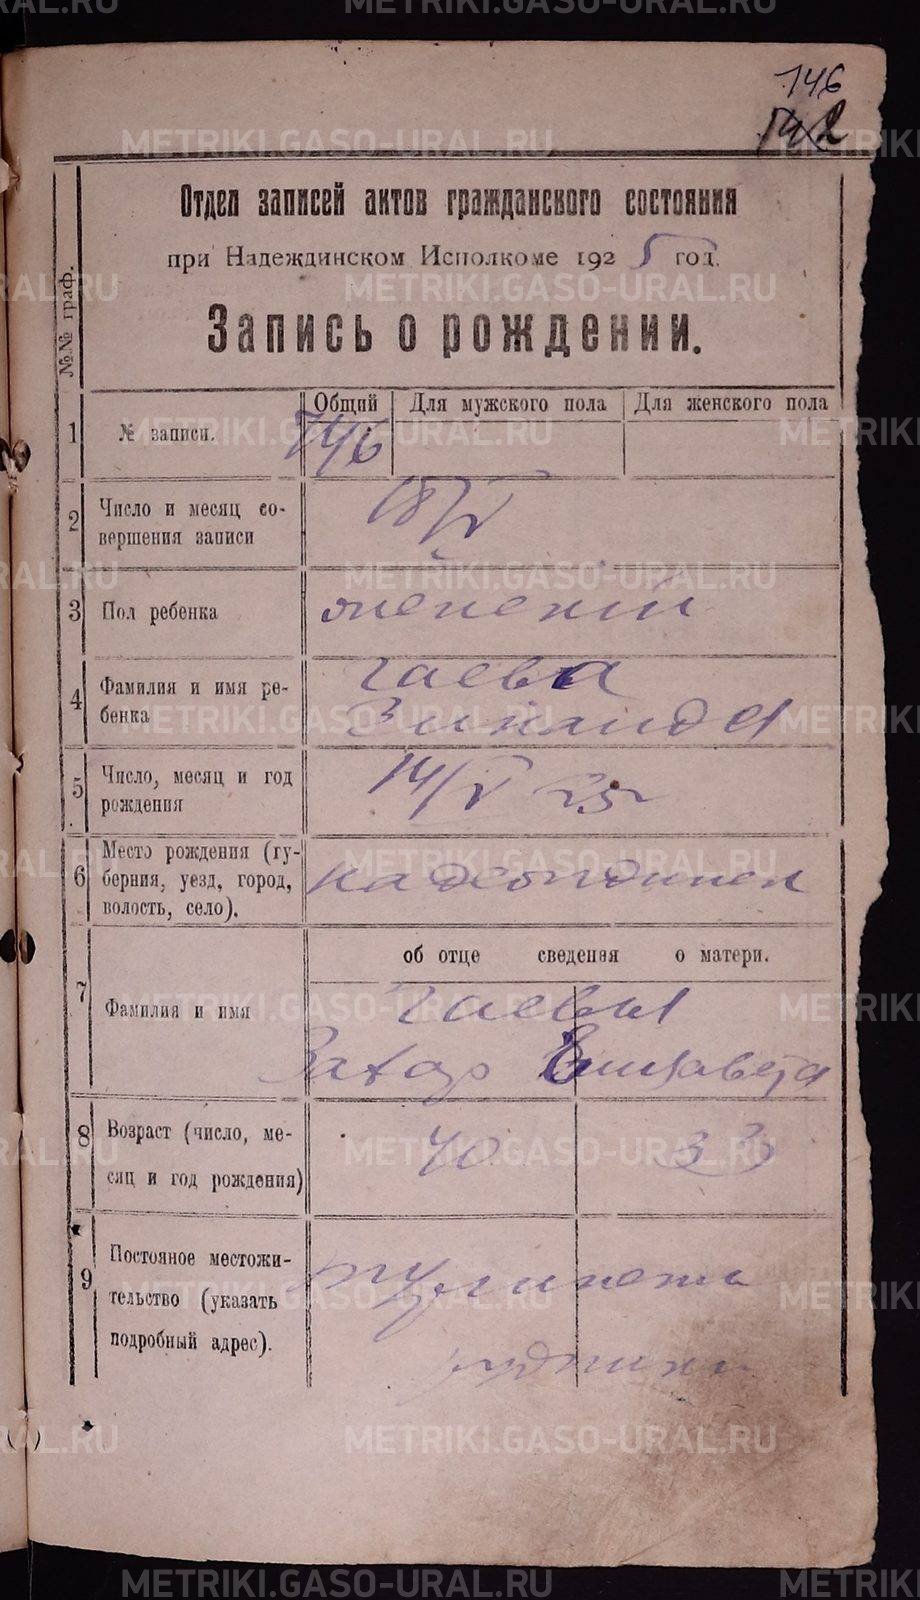 146
142
Отдел записей актов гражданского состояния
при Надеждинском Исполкоме 1925 год.
Запись о рождении.
№№ граф.
Общий Для мужского пола Для женского пола
1 № записи. 746
2 Число и месяц со-
вершения записи 18/V
3 Пол ребенка женский
4 Фамилия и имя ре-
бенка Гаева
Зинаида
5 Число, месяц и год
рождения 14/V 25 г
6 Место рождения (гу-
берния, уезд, город,
волость, село). Надеждинск
об отце сведения о матери.
7 Фамилия и имя Гаевы
Захар Елизавета
8 Возраст (число, ме-
сяц и год рождения) 40 33
9 Постояное местожи-
тельство (указать
подробный адрес).
рудники
METRIKI.GASO-URAL.RU